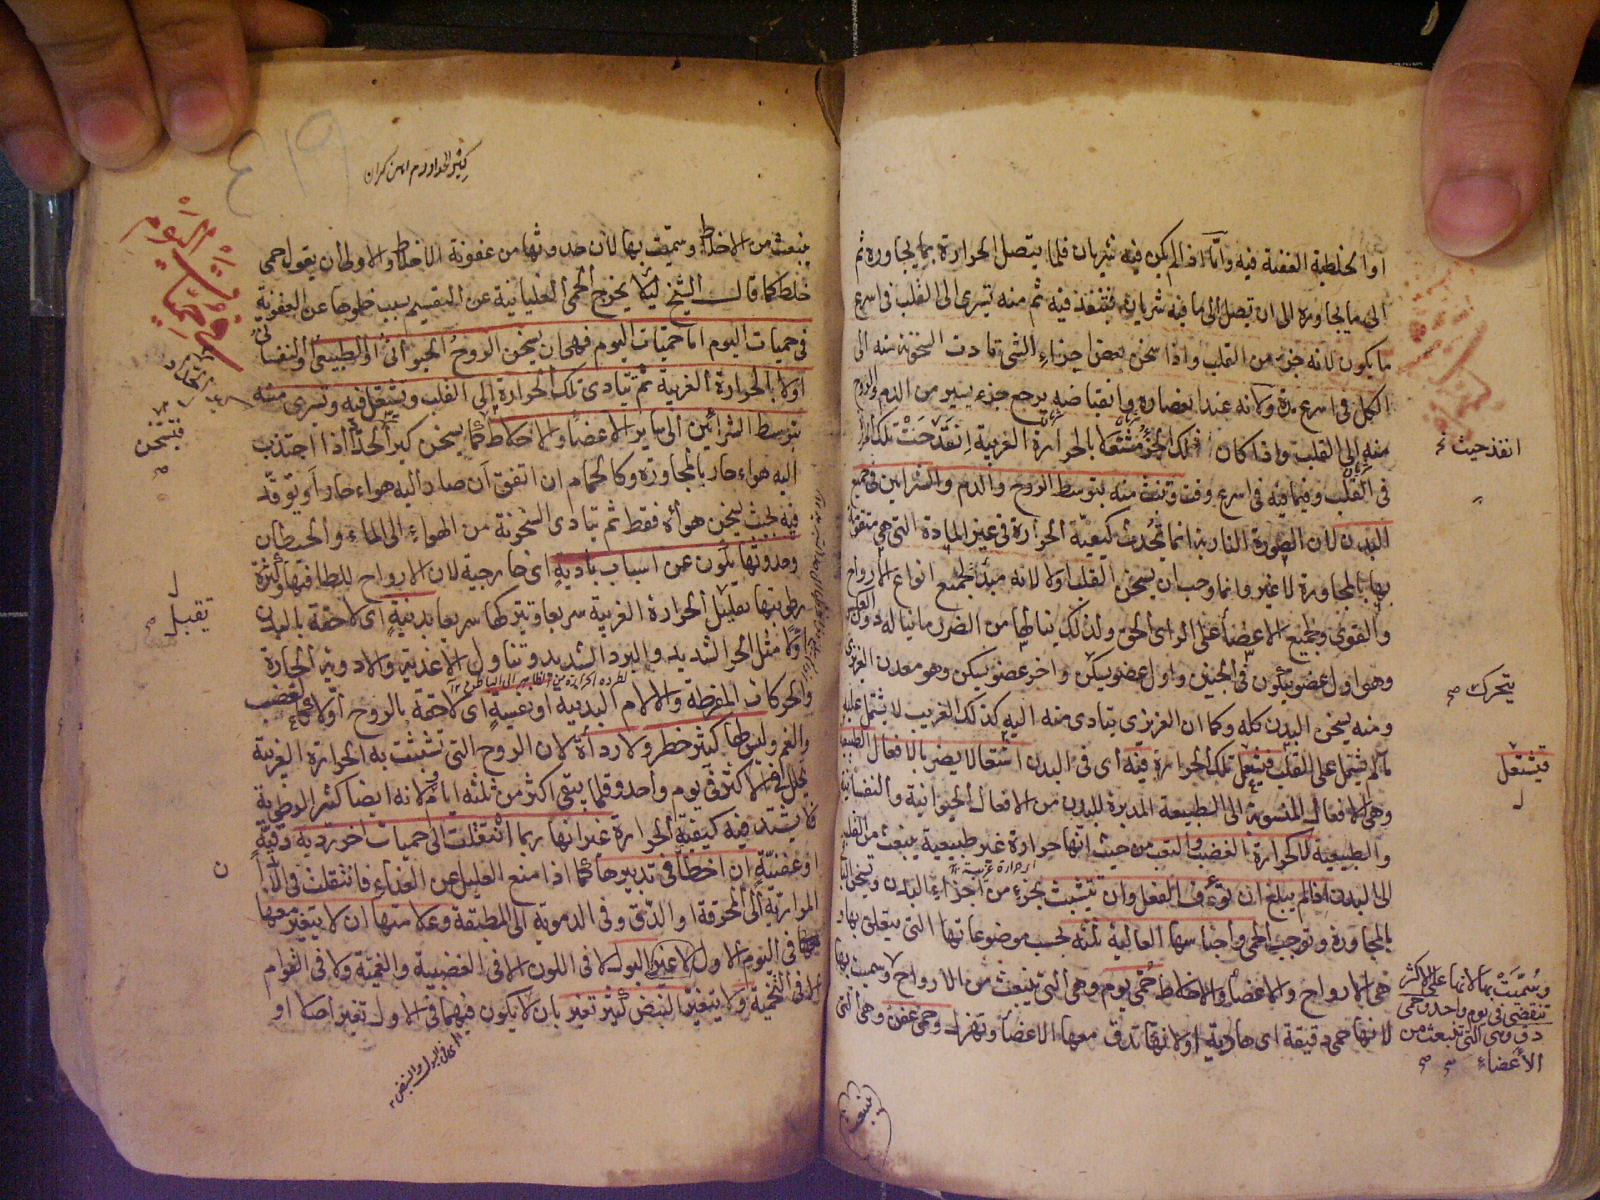 او الخلطية العفنة فيه واما اذا لم يكن فيه شريان فلما يتصل الحرارة بما يجاوره ثم
الى ما يجاوره الى ان يصل الى ما فيه شريان فتنفذ فيه ثم منه تسرى الى القلب فى اسرع
ما يكون لانه جزء من القلب واذا سخن بعض اجزاء الشى تادت السخونة منه الى
الكل فى اسرع مدة ولانه عند انبضاره وانقباضه يرجع جزء يسير من الدم والروح
منه الى القلب واذا كان ذلك الجزء مشتعلا بالحرارة الغريبة انقدحت تلك النار
فى القلب وفيما فيه فى اسرع وقت وتنبث منه بتوسط الروح والدم والشرايين فى جميع
البدن لان الصورة النارية انما تحدث كيفية الحرارة فى غير المادة التى هى متقومة
بها بالمجاورة لا غير وانما وجب ان يسخن القلب اولا لانه مبدأ لجميع انواع الارواح
والقوى وجميع الاعضاء على الراى الحق ولذلك ينالها من الضرر ما يناله دون العكس
وهو اول عضو يتكون فى الجنين واول عضو يسكن واخر عضو يسكن وهو معدن الغريزى
ومنه يسخن البدن كله وكما ان الغريزى يتادى منه اليه كذلك الغريب لا يشتمل عليه
ما لم يشتمل على القلب فيشعل تلك الحرارة فيه اى فى البدن اشتعالا يضر بالافعال الطبيعية
وهى الافعال المنسوبة الى الطبيعة المدبرة للبدن من الافعال الحيوانية والنفسانية
والطبيعية لا كحرارة الغضب والتعب من حيث انها حرارة غير طبيعية ينبعث من القلب
الى البدن اذا لم يبلغ ان تؤف الفعل وان تتشبث بجزء من اجزاء البدن وتسخن الباقى
بالمجاورة وتوجب الحمى واجناسها العالية ثلثة بحسب موضوعاتها التى يتعلق بها و
هى الارواح والاعضاء والاخلاط حمى يوم وهى التى ينبعث من الارواح وسميت بها
لانها حمى دقيقة اى هادية او لانها تدق معها الاعضاء وتهزل وحمى عفن وهى التى
انفذ حيث
يتحرك صح
فيشتعل
وسميت بها لانها على الاكثر
تنقضى فى يوم واحد وحمى
دق وهى التى تنبعث من
الاعضاء صح
ينبعث
ينبعث من الاخلاط وسميت بها لان حدوثها من عفونة الاخلاط والاولى ان يقول حمى
خلط كما قال الشيخ ليلا يخرج الحمى الغليانية عن التقسيم بسبب خلوها عن العفونة
فى حميات اليوم اما حميات اليوم فهى ان يسخن الروح الحيوانى او الطبيعى او النفسانى
اولا بالحرارة الغريبة ثم تتادى تلك الحرارة الى القلب وتشتعل فيه وتسرى منه
بتوسط الشرائين الى ساير الاعضاء والاخلاط كما يسخن كير الحداد اذا اجتذب
اليه هواء حار بالمجاورة وكالحمام ان اتفق ان صار اليه هواء حار او توقد
فيه بحيث يسخن هواه فقط ثم يتادى السخونة من الهواء الى الماء والحيطان
وحدوثها يكون عن اسباب بادية اى خارجية لان الارواح للطافتها وكثرة
رطوبتها تقليل الحرارة الغريبة سريعا وتتركها سريعا بدنية اى لاحقة بالبدن
اولا مثل الحر الشديد والبرد الشديد وتناول الاغذية والادوية الحارة
والحركات المفرطة والالام البدنية او نفسية اى لاحقة بالروح اولا كالغضب
والغم وليس لها كثير خطر ولا رداءة لان الروح التى تشبثت به الحرارة الغريبة
يتحلل فى الاكثر فى يوم واحد وقلما يبقى اكثر من ثلثة ايام ولانه ايضا كثير الرطوبة
فلا يشتد فيه كيفية الحرارة غير انها ربما انتقلت الى حميات اخر ردية دقية
او عفنية ان اخطأ فى تدبيرها كما اذا منع العليل عن الغذاء فانتقلت فى
المرارية الى المحرقة او الدق وفى الدموية الى المطبقة وعلامتها ان لا يتغير معها
فى اليوم الاول لا غير البول لا فى اللون الا فى الغضبية والغمية ولا فى القوام
الا فى التخمية ولا يتغير النبض كثير تغير بان لا يكون فيهما فى الاول تغير اصلا او
فيتسخن
تقبل صح
٤١٩
حميات اليوم